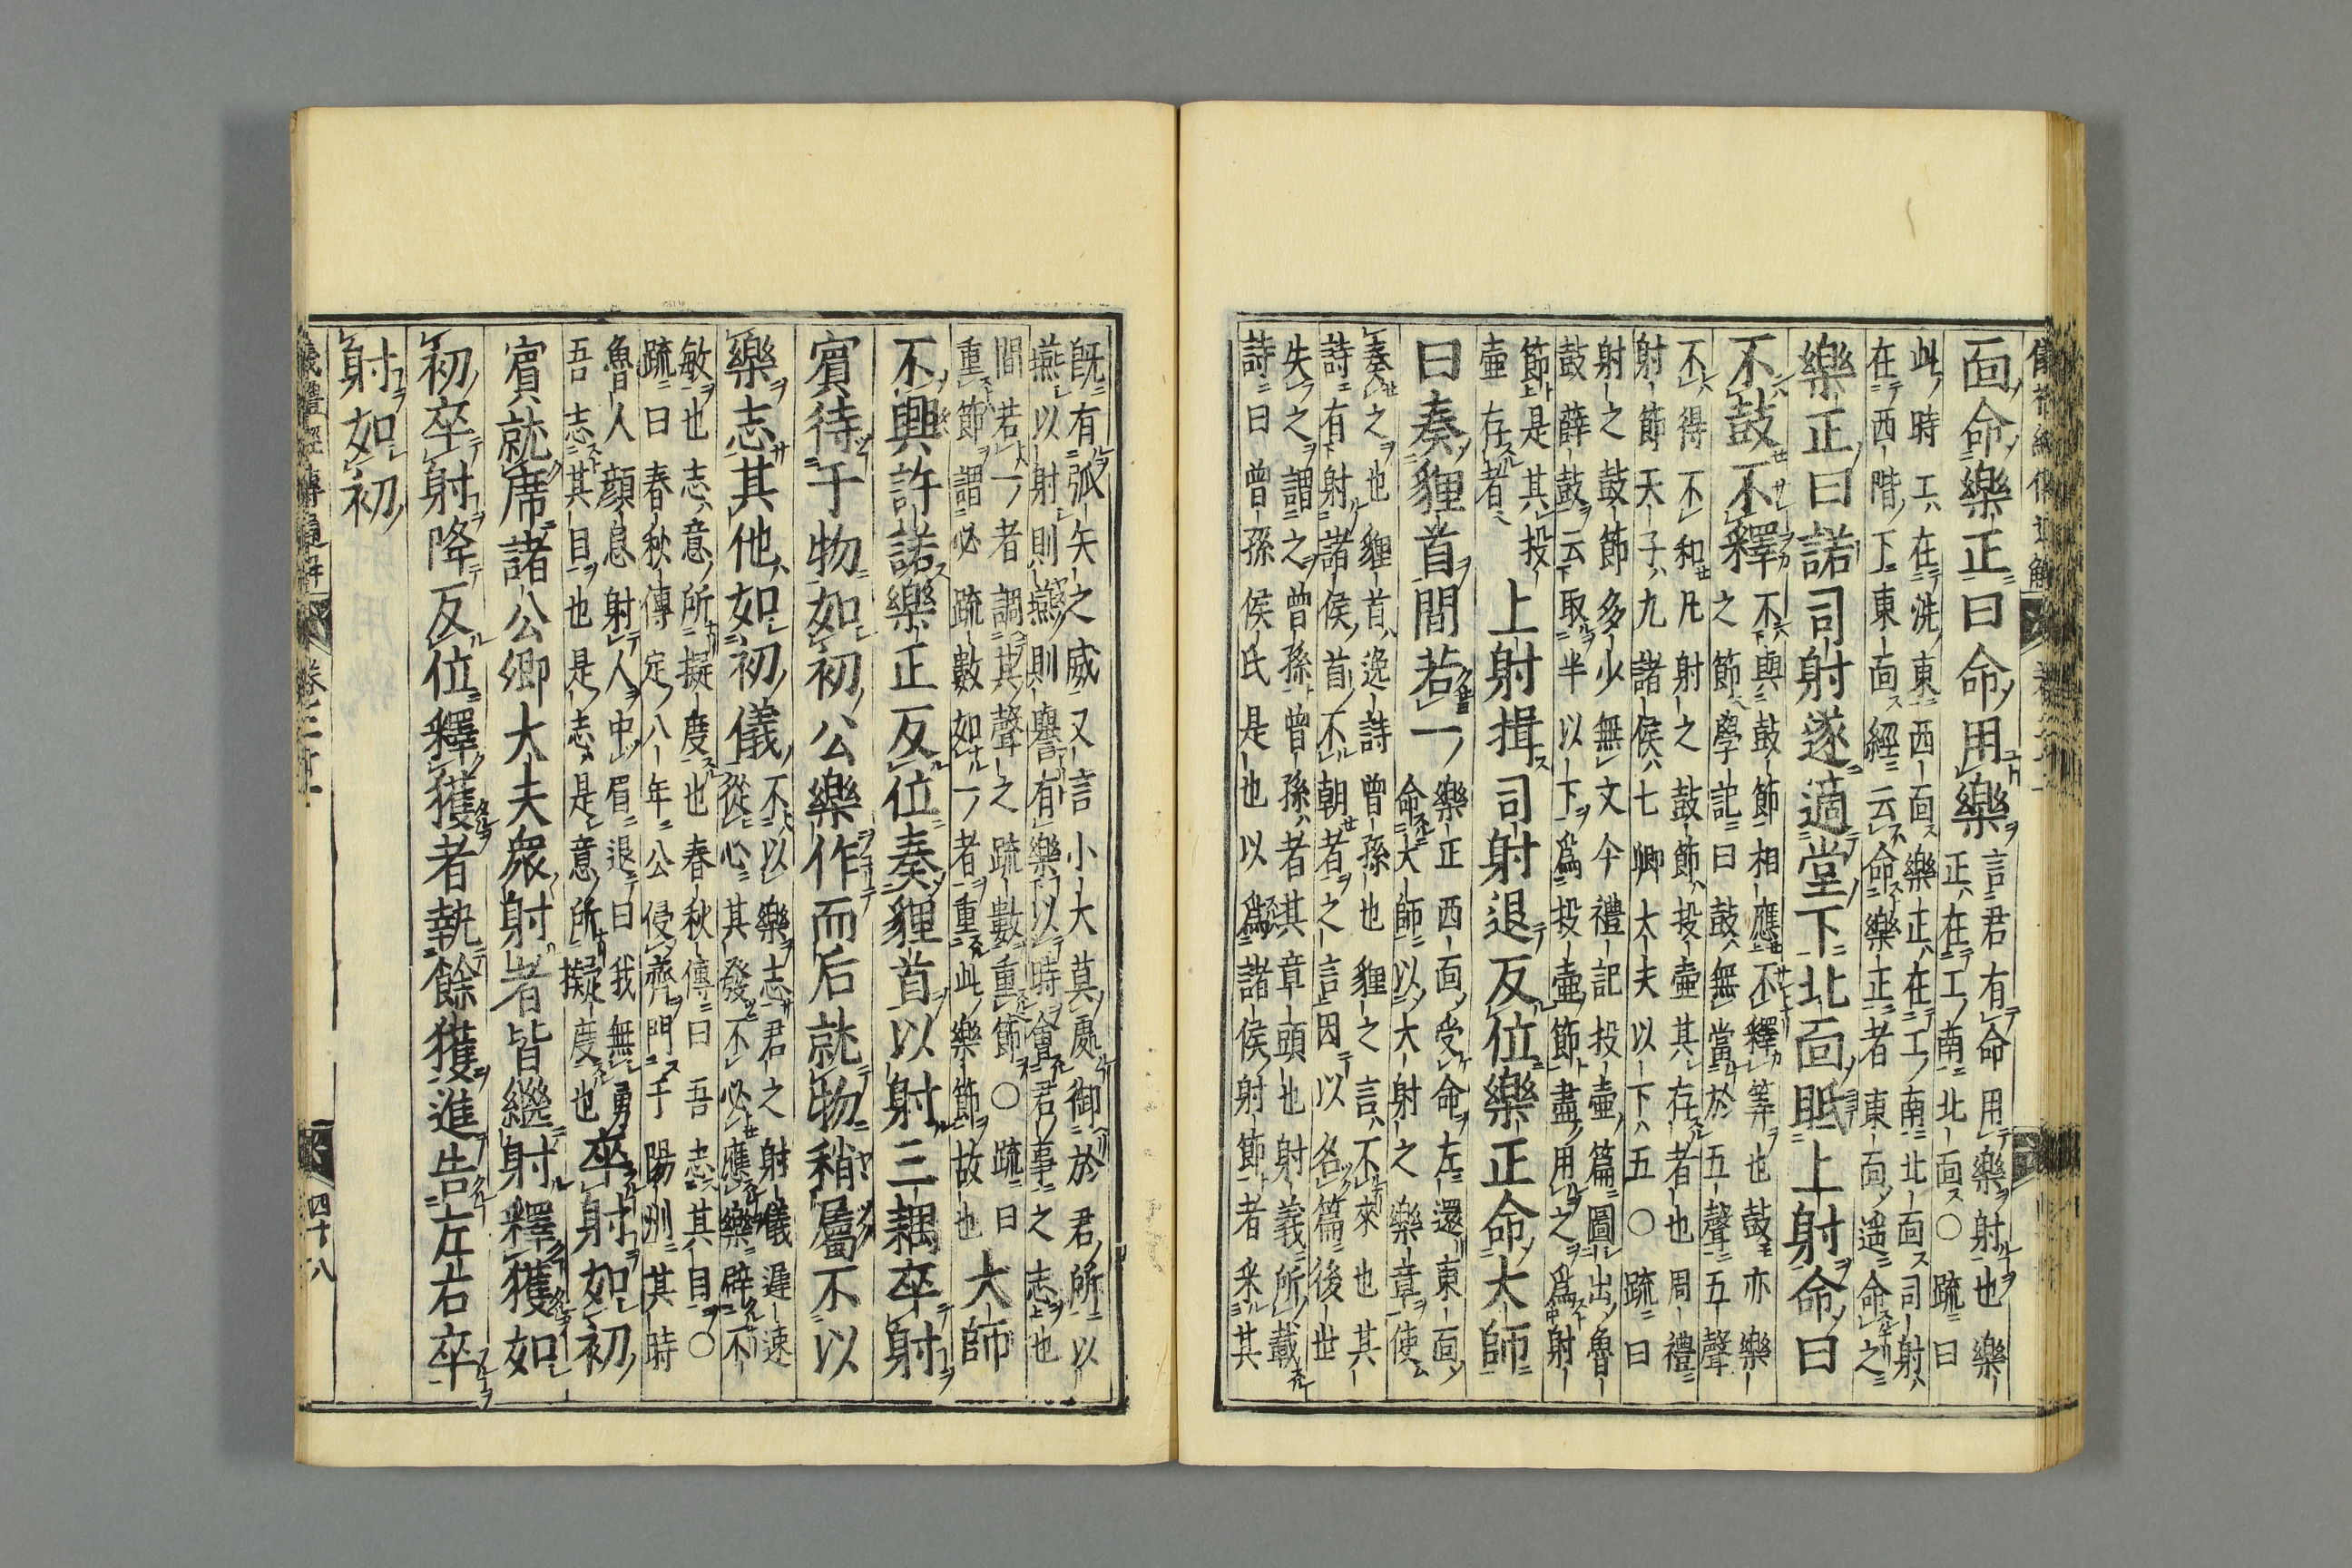 面命樂正曰命用樂言君有命用樂射也樂
正在工南北面○疏曰
此時工在洗東西面樂正在工南北面司射
在西階下東面經云命樂正者東面遥命之
樂正曰諾司射遂適堂下北面眂上射命曰
不鼓不釋不與鼓節相應不釋筭也鼓亦樂
之節學記曰鼓無當於五聲五聲
不得不和凡射之鼓節投壷其存者也周禮
射節天子九諸侯七卿大夫以下五○疏曰
射之鼓節多少無文今禮記投壷篇圖出魯
鼓薛鼓云取半以下爲投壷節盡用之爲射
節是其投
壷存者上射揖司射退反位樂正命大師
曰奏貍首間若一樂正西面受命左還東面
命大師以大射之樂章使
奏之也貍首逸詩曾孫也貍之言不來也其
詩有射諸侯首不朝者之言因以名篇後世
失之謂之曾孫曾孫者其章頭也射義所載
詩曰曾孫侯氏是也以爲諸侯射節者采其
既有弧矢之威又言小大莫處御於君所以
燕以射則燕則譽有樂以時會君事之志也
間若一者調其聲之疏數重節○疏曰
重節謂必疏數如一者重此樂節故也大師
不興許諾樂正反位奏貍首以射三耦卒射
賓待于物如初公樂作而后就物稍屬不以
樂志其他如初儀不以樂志君之射儀遲速
從心其發不必應樂辟不
敏也志意所擬度也春秋傳曰吾志其目○
疏曰春秋傳定八年公侵齊門于陽州其時
魯人顔息射人中眉退曰我無勇
吾志其目也是志是意所擬度也卒射如初
賓就席諸公卿大夫衆射者皆繼射釋獲如
初卒射降反位釋獲者執餘獲進告左右卒
射如初
儀禮經傳通解 四十八